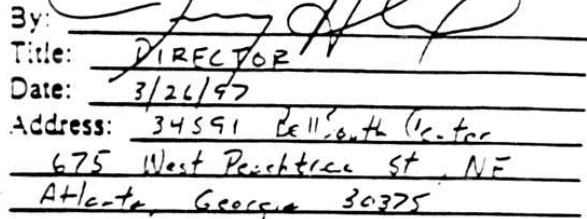 By:
Title: DIRECTOR
Date: 3/26/97
Address: 34S91 BellSouth Center
675 West Peachtree St NE
Atlanta, Georgia 30375